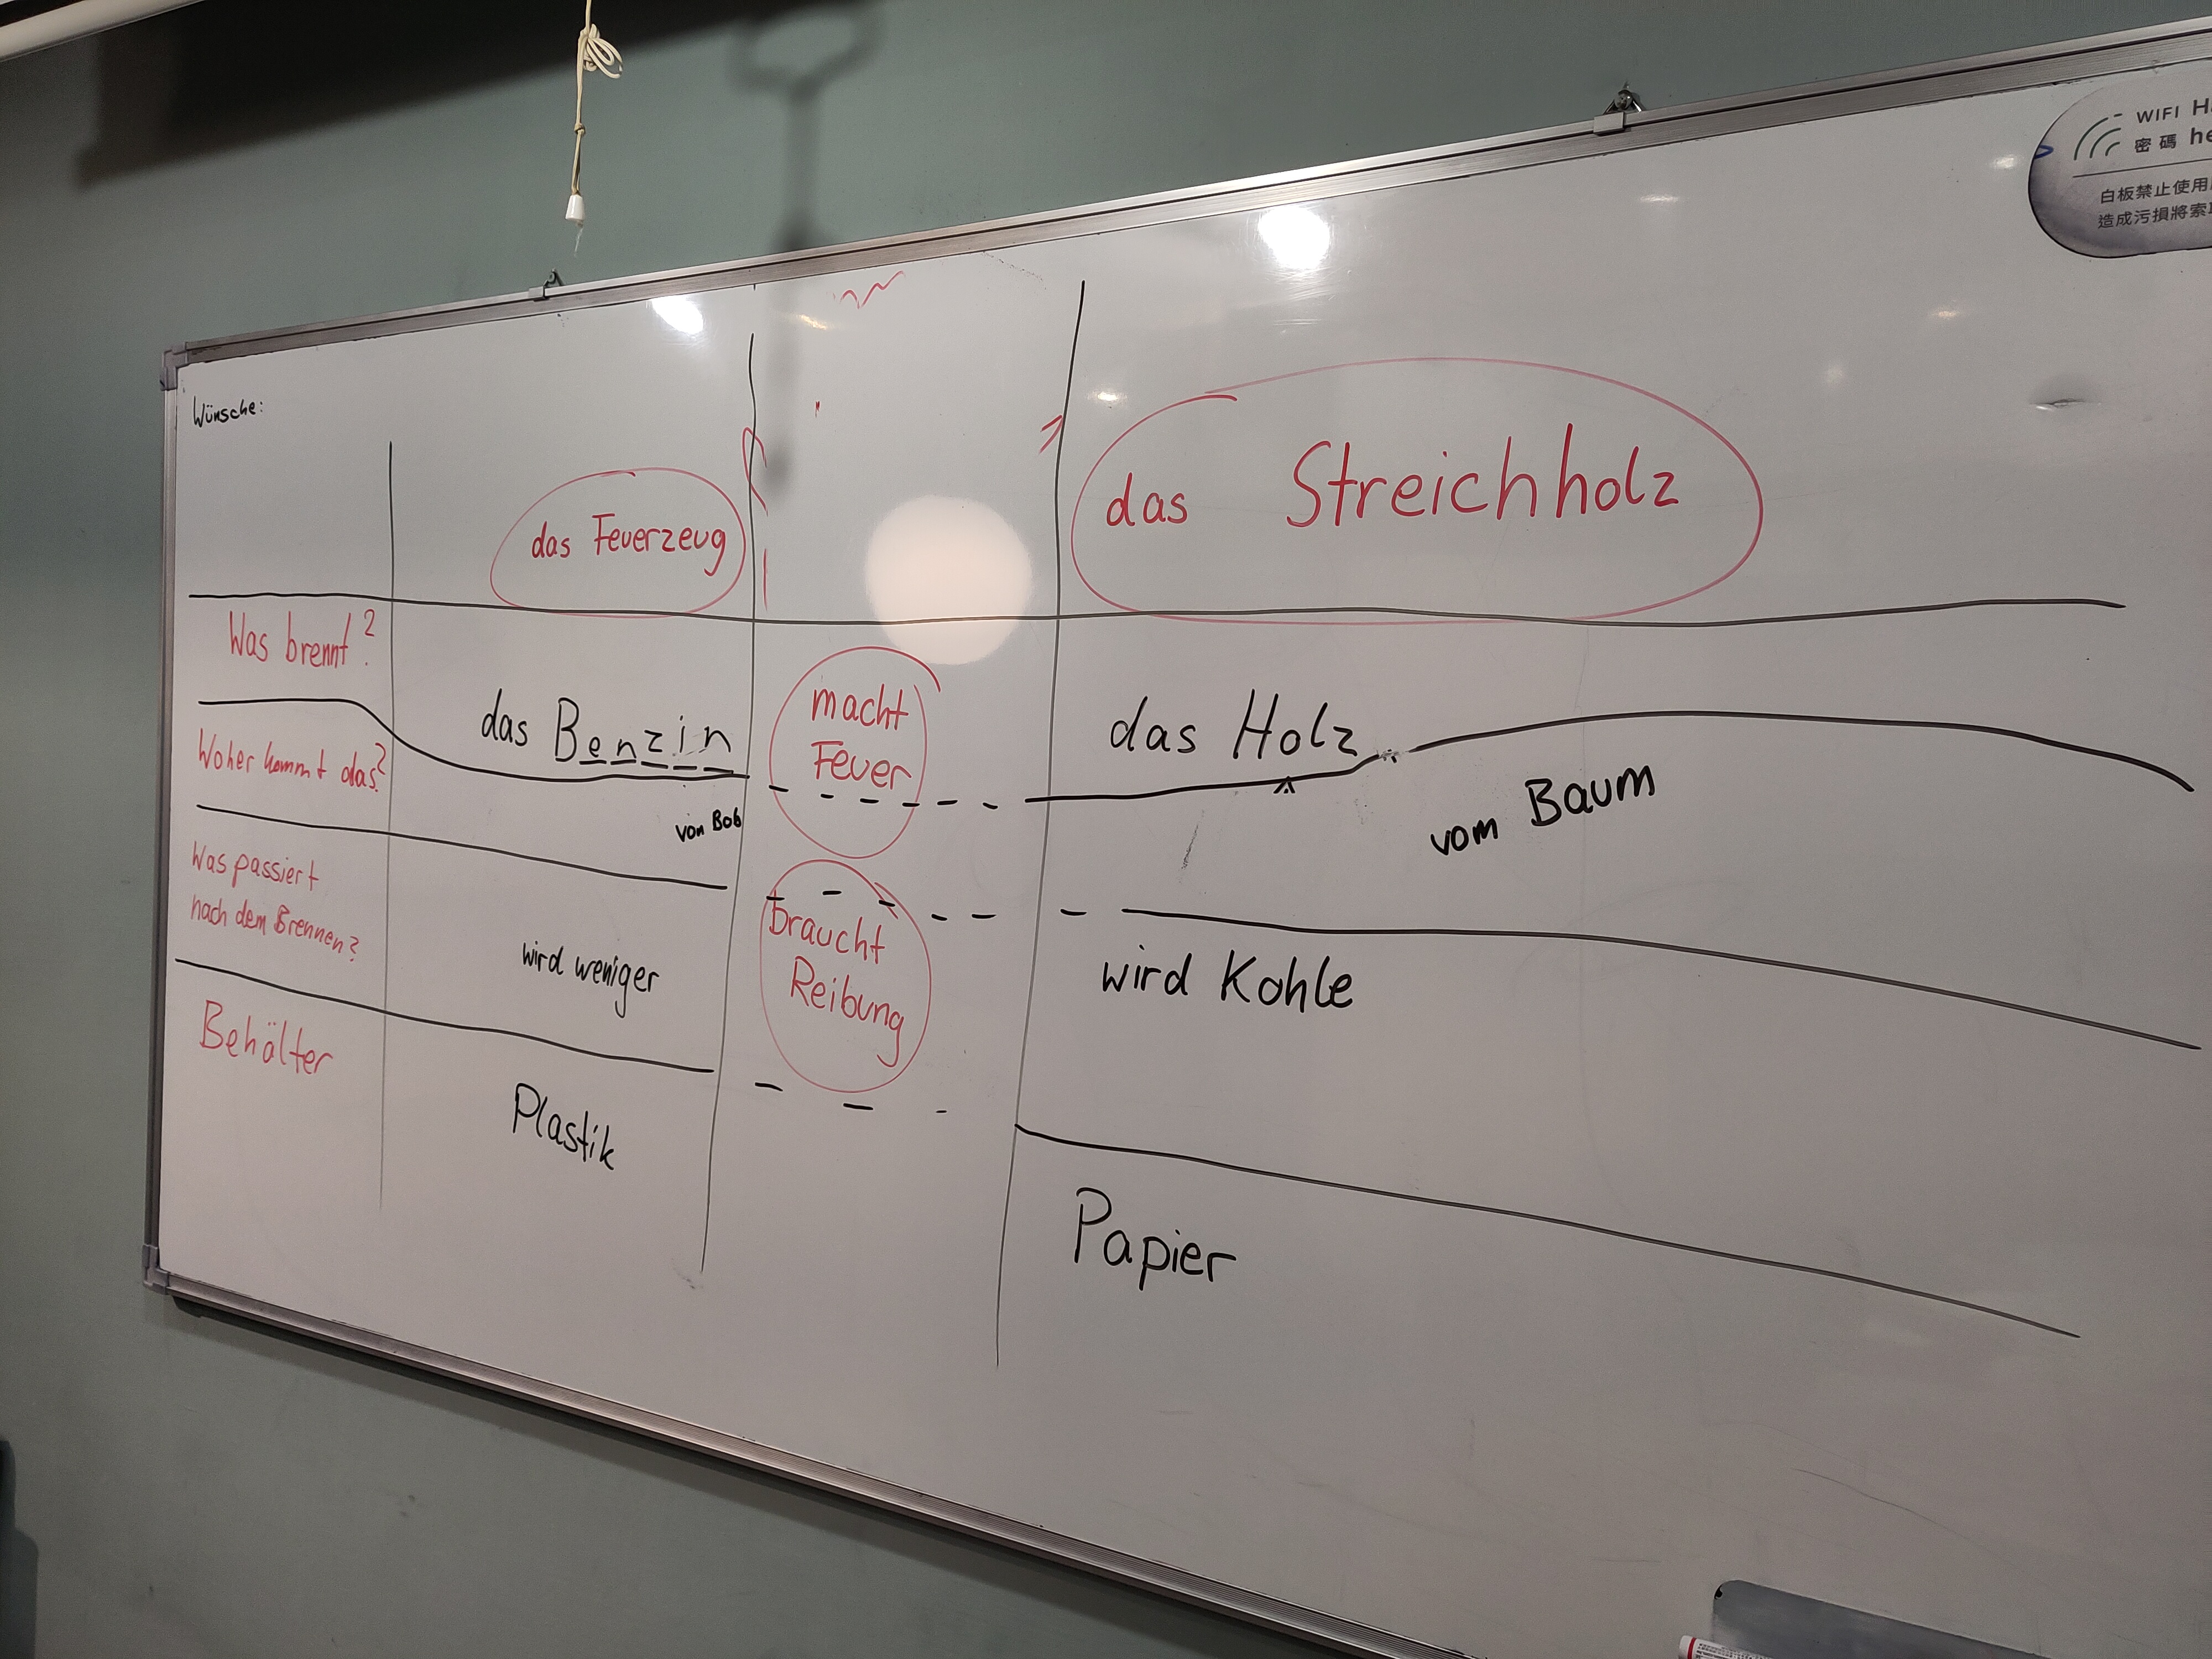 WIFI
密碼 he
白板禁止使用
造成污損將索
Wünsche:
das Feuerzeug
das Streichholz
Was brennt?
das Benzin
macht
Feuer
das Holz
Woher kommt das?
von Bob
vom Baum
Was passiert
nach dem Brennen?
wird weniger
braucht
Reibung
wird Kohle
Behälter
Plastik
Papier